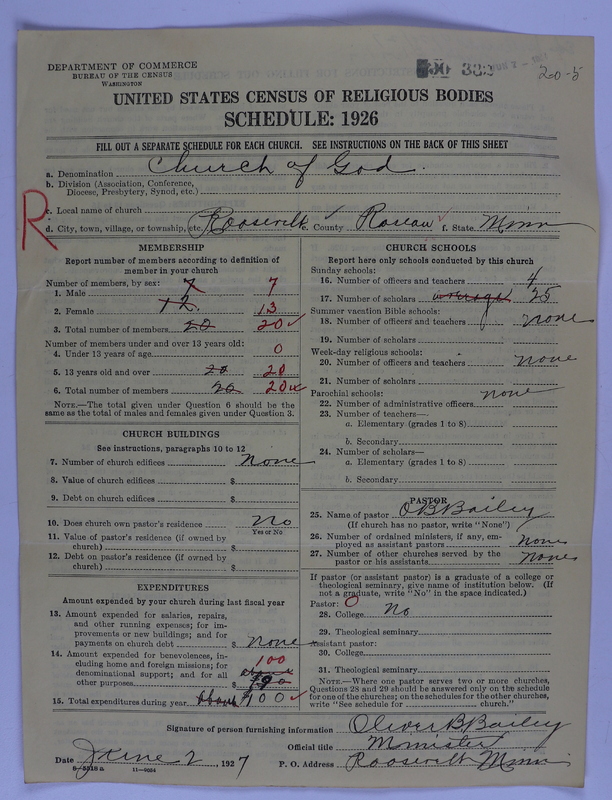 DEPARTMENT OF COMMERCE
BUREAU OF THE CENSUS
WASHINGTON
20-5
UNITED STATES CENSUS OF RELIGIOUS BODIES
SCHEDULE: 1926
FILL OUT A SEPARATE SCHEDULE FOR EACH CHURCH. SEE INSTRUCTIONS ON THE BACK OF THIS SHEET
a. Denomination Church of God.
b. Division (Association, Conference,
Diocese, Presbytery, Synod, etc.)
R
c. Local name of church
d. City, town, village, or township, etc. Roosevelt e. County Roseau f. State Minn
MEMBERSHIP
Report number of members according to definition of
member in your church
Number of members, by sex:
1. Male 7 7
2. Female 12 13
3. Total number of members 20 20
Number of members under and over 13 years old:
4. Under 13 years of age 0
5. 13 years old and over 20 20
6. Total number of members 20 20
NOTE.—The total given under Question 6 should be the
same as the total of males and females given under Question 3.
CHURCH BUILDINGS
See instructions, paragraphs 10 to 12
7. Number of church edifices none
8. Value of church edifices $
9. Debt on church edifices $
10. Does church own pastor's residence no
Yes or No
11. Value of pastor's residence (if owned by
church) $
12. Debt on pastor's residence (if owned by
church) $
EXPENDITURES
Amount expended by your church during last fiscal year
13. Amount expended for salaries, repairs,
and other running expenses; for im-
provements or new buildings; and for
payments on church debt $ none
14. Amount expended for benevolences, in-
cluding home and foreign missions; for
denominational support; and for all
other purposes $ 100
15. Total expenditures during year about $100
CHURCH SCHOOLS
Report here only schools conducted by this church
Sunday schools:
16. Number of officers and teachers 4
17. Number of scholars average 25
Summer vacation Bible schools:
18. Number of officers and teachers none
19. Number of scholars
Week-day religious schools:
20. Number of officers and teachers none
21. Number of scholars
Parochial schools:
22. Number of administrative officers none
23. Number of teachers—
a. Elementary (grades 1 to 8)
b. Secondary
24. Number of scholars—
a. Elementary (grades 1 to 8)
b. Secondary
PASTOR
25. Name of pastor O B Bailey
(If church has no pastor, write "None")
26. Number of ordained ministers, if any, em-
ployed as assistant pastors none
27. Number of other churches served by the
pastor or his assistants none
If pastor (or assistant pastor) is a graduate of a college or
theological seminary, give name of institution below. (If
not a graduate, write "No" in the space indicated.)
Pastor: 0
28. College no
29. Theological seminary
Assistant pastor:
30. College
31. Theological seminary
NOTE.—Where one pastor serves two or more churches,
Questions 28 and 29 should be answered only on the schedule
for one of the churches; on the schedules for the other churches,
write "See schedule for church."
Signature of person furnishing information Oliver B Bailey
Official title Minister
Date June 2, 1927 P. O. Address Roosevelt Minn
11—9064